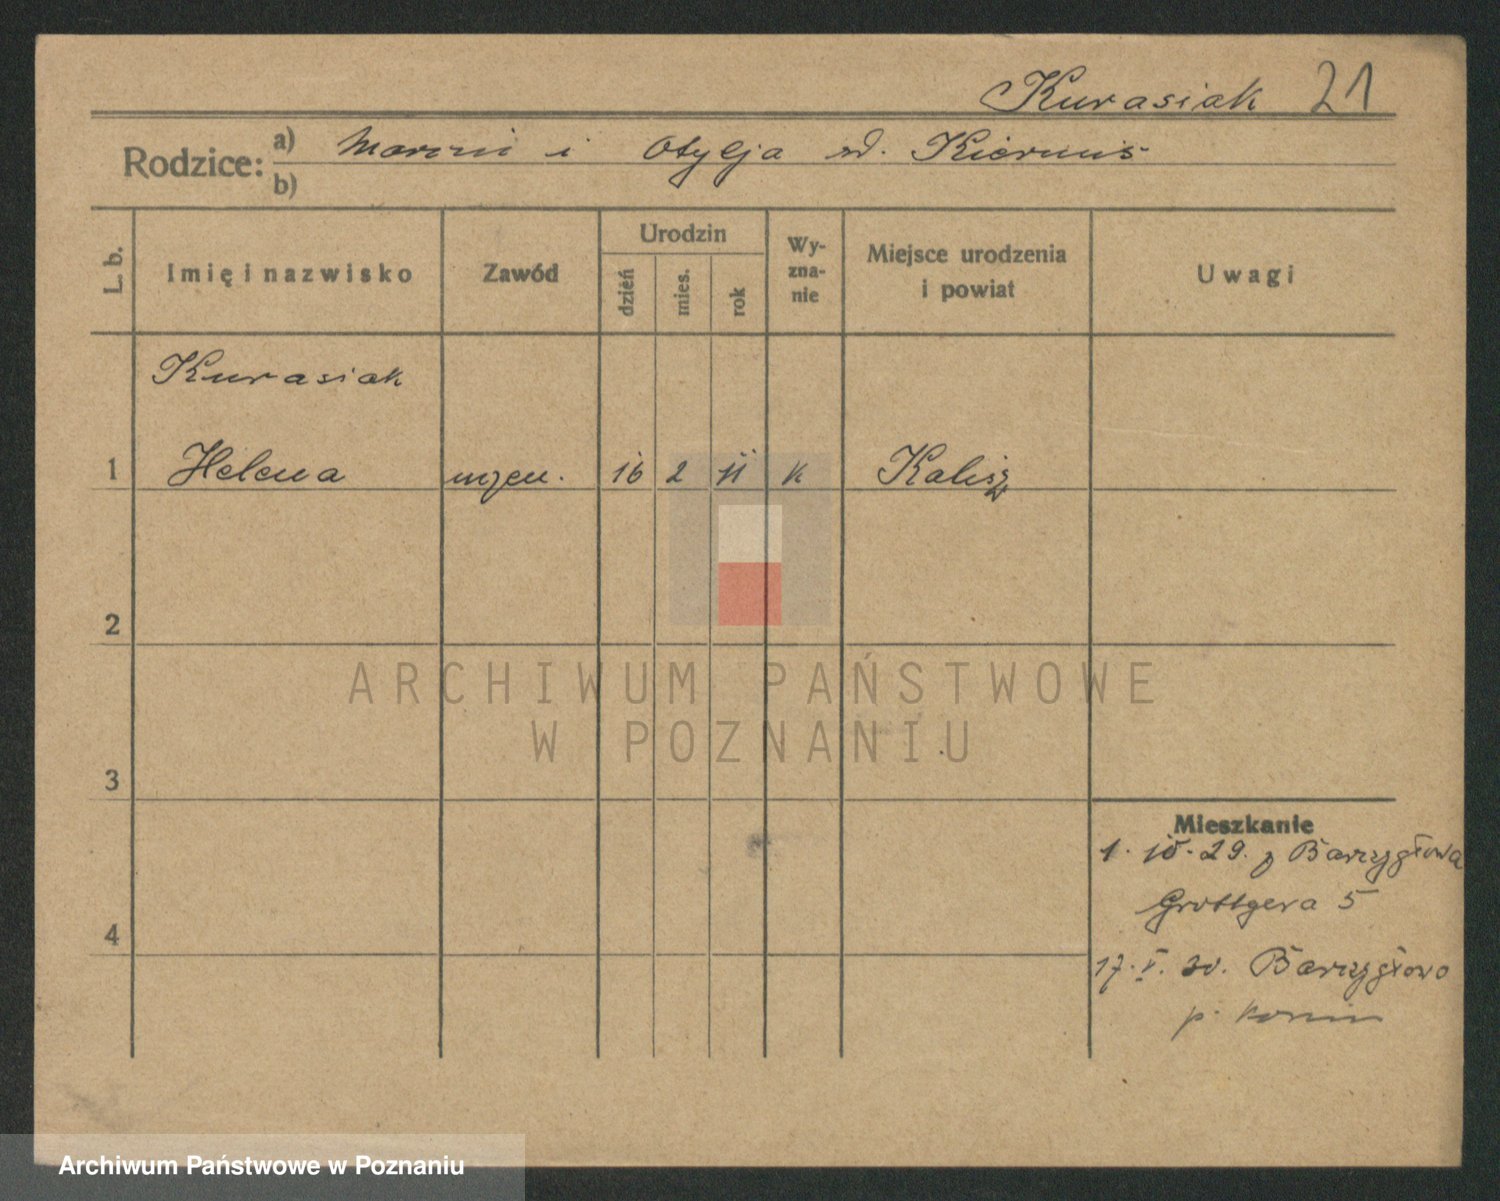 Kurasiak 21
Rodzice: a) Marcin i Otylja zd.
b)
L. b.
Imię i nazwisko
Zawód
Urodzin
dzień
mies.
rok
Wy-
zna-
nie
Miejsce urodzenia
i powiat
Uwagi
Kurasiak
1 Helena 16 2 11 k Kalisz
2
3
4
Mieszkanie
1. 10. 29. z Barzygłowa
Grottgera 5
17. V. 30. Barzygłowo
p. Konin
ARCHIWUM PAŃSTWOWE
W POZNANIU
Archiwum Państwowe w Poznaniu